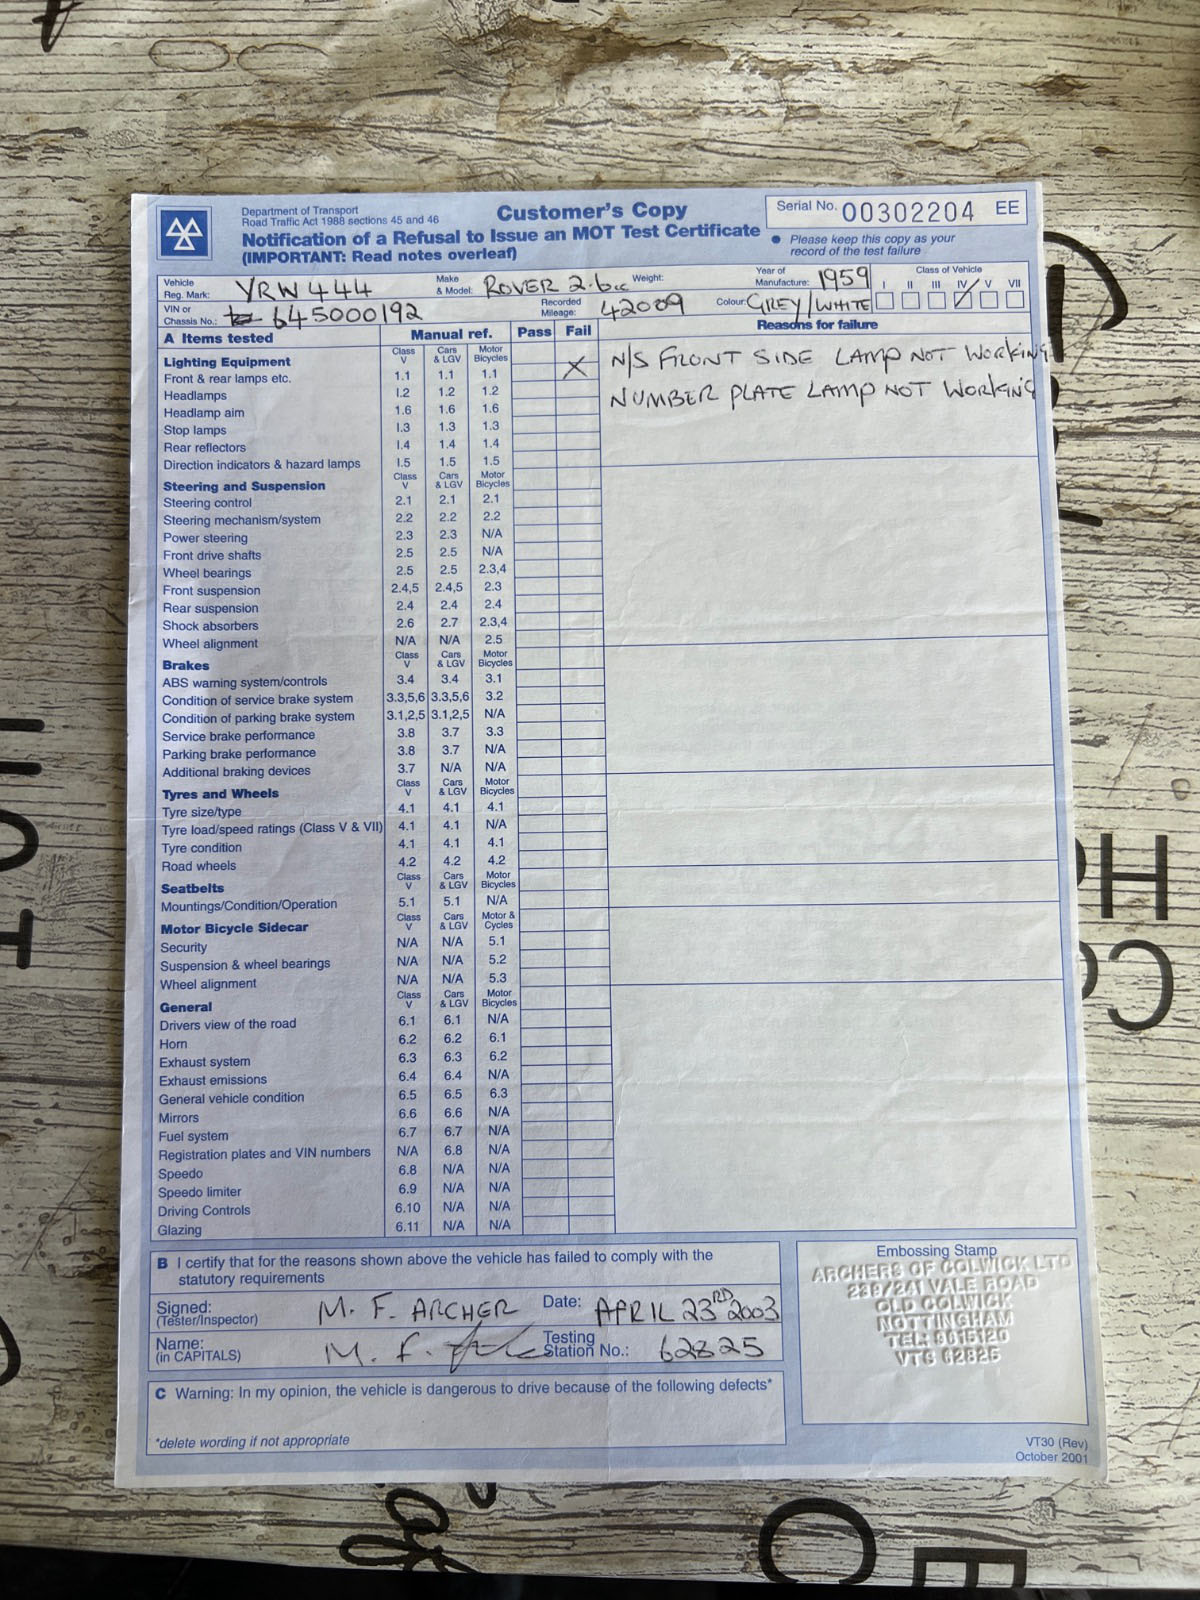 Department of Transport
Road Traffic Act 1988 sections 45 and 46
Customer's Copy
Notification of a Refusal to Issue an MOT Test Certificate
(IMPORTANT: Read notes overleaf)
Serial No. 00302204 EE
• Please keep this copy as your
record of the test failure
Vehicle Reg. Mark: YRW444 Make & Model: ROVER 2.6cc Weight: Year of Manufacture: 1959 Class of Vehicle I II III IV V VII
VIN or Chassis No.: 645000192 Recorded Mileage: 42009 Colour: GREY/WHITE
A Items tested Manual ref. Pass Fail Reasons for failure
Lighting Equipment Class V Cars & LGV Motor Bicycles X N/S FRONT SIDE LAMP NOT WORKING
Front & rear lamps etc. 1.1 1.1 1.1
Headlamps 1.2 1.2 1.2 NUMBER PLATE LAMP NOT WORKING
Headlamp aim 1.6 1.6 1.6
Stop lamps 1.3 1.3 1.3
Rear reflectors 1.4 1.4 1.4
Direction indicators & hazard lamps 1.5 1.5 1.5
Steering and Suspension Class V Cars & LGV Motor Bicycles
Steering control 2.1 2.1 2.1
Steering mechanism/system 2.2 2.2 2.2
Power steering 2.3 2.3 N/A
Front drive shafts 2.5 2.5 N/A
Wheel bearings 2.5 2.5 2.3,4
Front suspension 2.4,5 2.4,5 2.3
Rear suspension 2.4 2.4 2.4
Shock absorbers 2.6 2.7 2.3,4
Wheel alignment N/A N/A 2.5
Brakes Class V Cars & LGV Motor Bicycles
ABS warning system/controls 3.4 3.4 3.1
Condition of service brake system 3.3,5,6 3.3,5,6 3.2
Condition of parking brake system 3.1,2,5 3.1,2,5 N/A
Service brake performance 3.8 3.7 3.3
Parking brake performance 3.8 3.7 N/A
Additional braking devices 3.7 N/A N/A
Tyres and Wheels Class V Cars & LGV Motor Bicycles
Tyre size/type 4.1 4.1 4.1
Tyre load/speed ratings (Class V & VII) 4.1 4.1 N/A
Tyre condition 4.1 4.1 4.1
Road wheels 4.2 4.2 4.2
Seatbelts Class V Cars & LGV Motor Bicycles
Mountings/Condition/Operation 5.1 5.1 N/A
Motor Bicycle Sidecar Class V Cars & LGV Motor & Cycles
Security N/A N/A 5.1
Suspension & wheel bearings N/A N/A 5.2
Wheel alignment N/A N/A 5.3
General Class V Cars & LGV Motor Bicycles
Drivers view of the road 6.1 6.1 N/A
Horn 6.2 6.2 6.1
Exhaust system 6.3 6.3 6.2
Exhaust emissions 6.4 6.4 N/A
General vehicle condition 6.5 6.5 6.3
Mirrors 6.6 6.6 N/A
Fuel system 6.7 6.7 N/A
Registration plates and VIN numbers N/A 6.8 N/A
Speedo 6.8 N/A N/A
Speedo limiter 6.9 N/A N/A
Driving Controls 6.10 N/A N/A
Glazing 6.11 N/A N/A
B I certify that for the reasons shown above the vehicle has failed to comply with the
statutory requirements
Signed: (Tester/Inspector) M. F. ARCHER Date: APRIL 23RD 2003
Name: (in CAPITALS) M. F. Testing Station No.: 62825
C Warning: In my opinion, the vehicle is dangerous to drive because of the following defects*
*delete wording if not appropriate
Embossing Stamp
ARCHERS OF COLWICK LTD
239/241 VALE ROAD
OLD COLWICK
NOTTINGHAM
TEL: 9615120
VTS 62825
VT30 (Rev)
October 2001